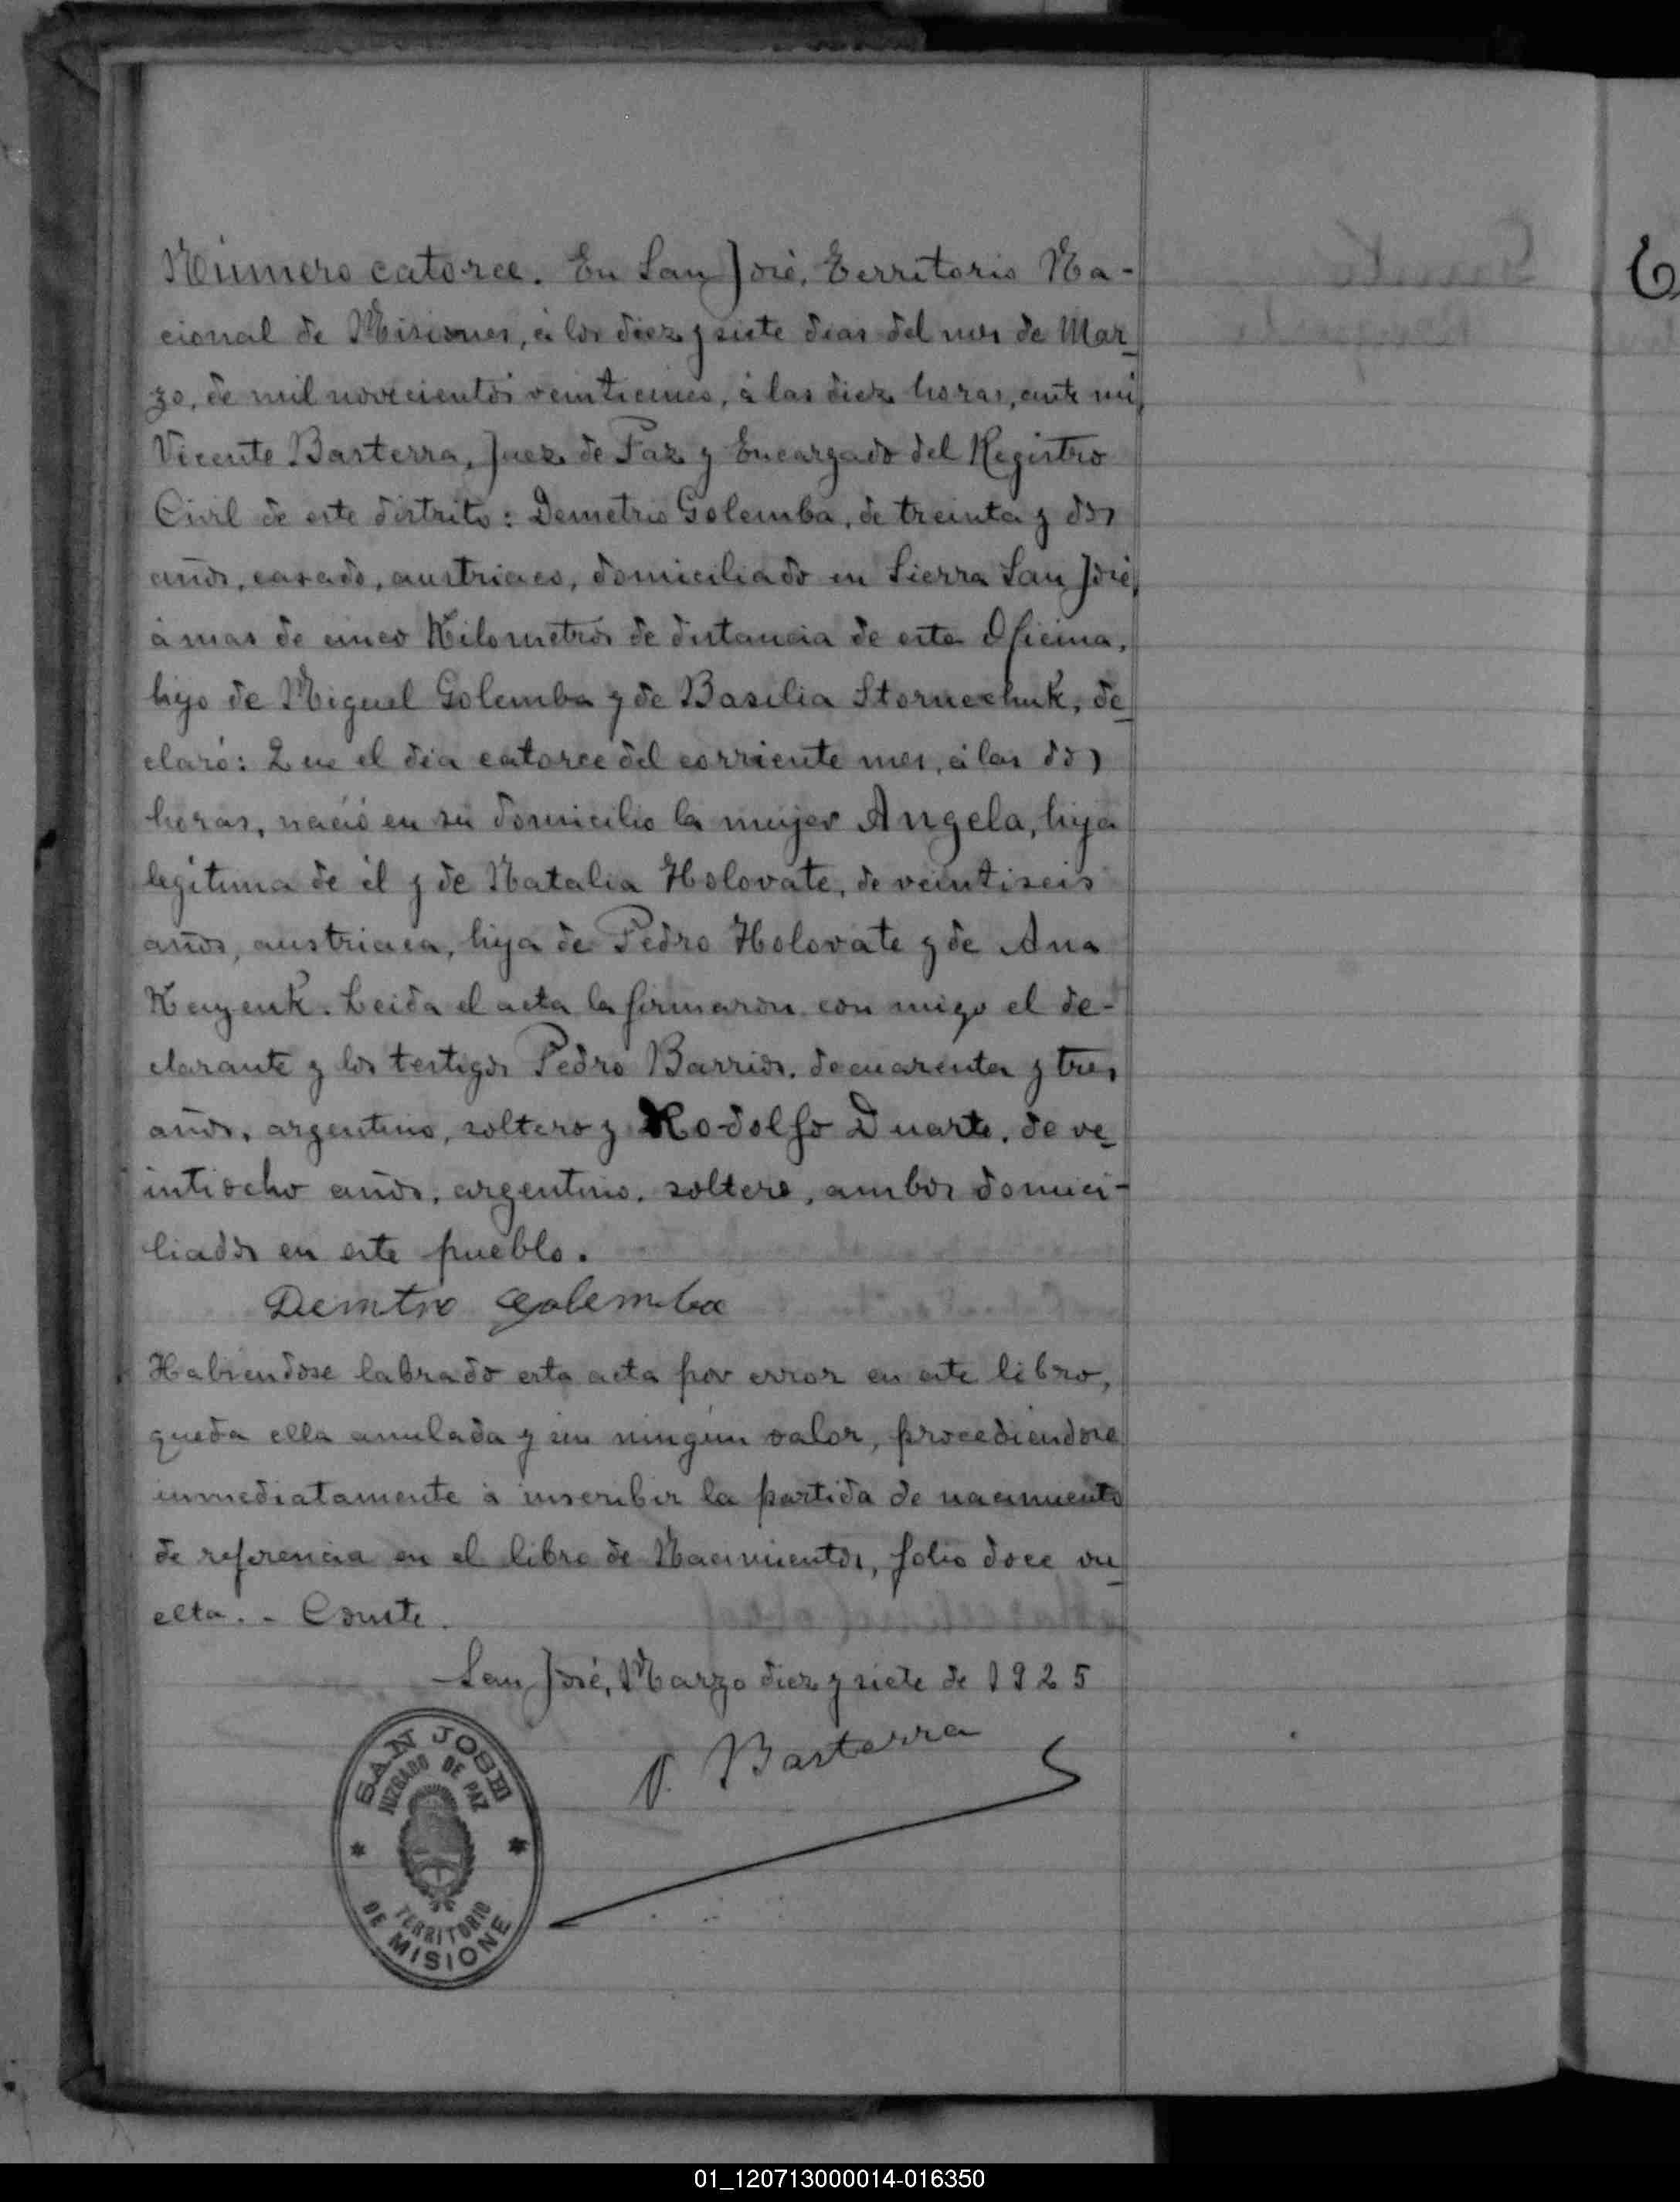 Número catorce. En San José, Territorio Na-
cional de Misiones, á los diez y siete dias del mes de Mar-
zo, de mil novecientos veinticinco, á las diez horas, ante mi,
Vicente Basterra, Juez de Paz y Encargado del Registro
Civil de este distrito: Demetrio Golemba, de treinta y dos
años, casado, austriaco, domiciliado en Sierra San José,
á mas de cinco Kilometros de distancia de esta Oficina,
hijo de Miguel Golemba y de Basilia Stornechuk, de-
claró: Que el dia catorce del corriente mes, á las dos
horas, nació en su domicilio la mujer Angela, hija
legitima de él y de Natalia Holovate, de veintiseis
años, austriaca, hija de Pedro Holovate y de Ana
Leida el acta la firmaron con migo el de-
clarante y los testigos Pedro Barrios, de cuarenta y tres
años, argentino, soltero y Rodolfo Duarte, de ve-
intiocho años, argentino, soltero, ambos domici-
liados en este pueblo.
Demtrio Golemba
Habiendose labrado esta acta por error en este libro,
queda ella anulada y sin ningún valor, procediendose
inmediatamente á inscribir la partida de nacimiento
de referencia en el libro de Nacimientos, folio doce vu-
elta. - Conste.
San José, Marzo diez y siete de 1925
V. Basterra
SAN JOSE
JUZGADO DE PAZ
TERRITORIO
DE MISIONE
01_120713000014-016350